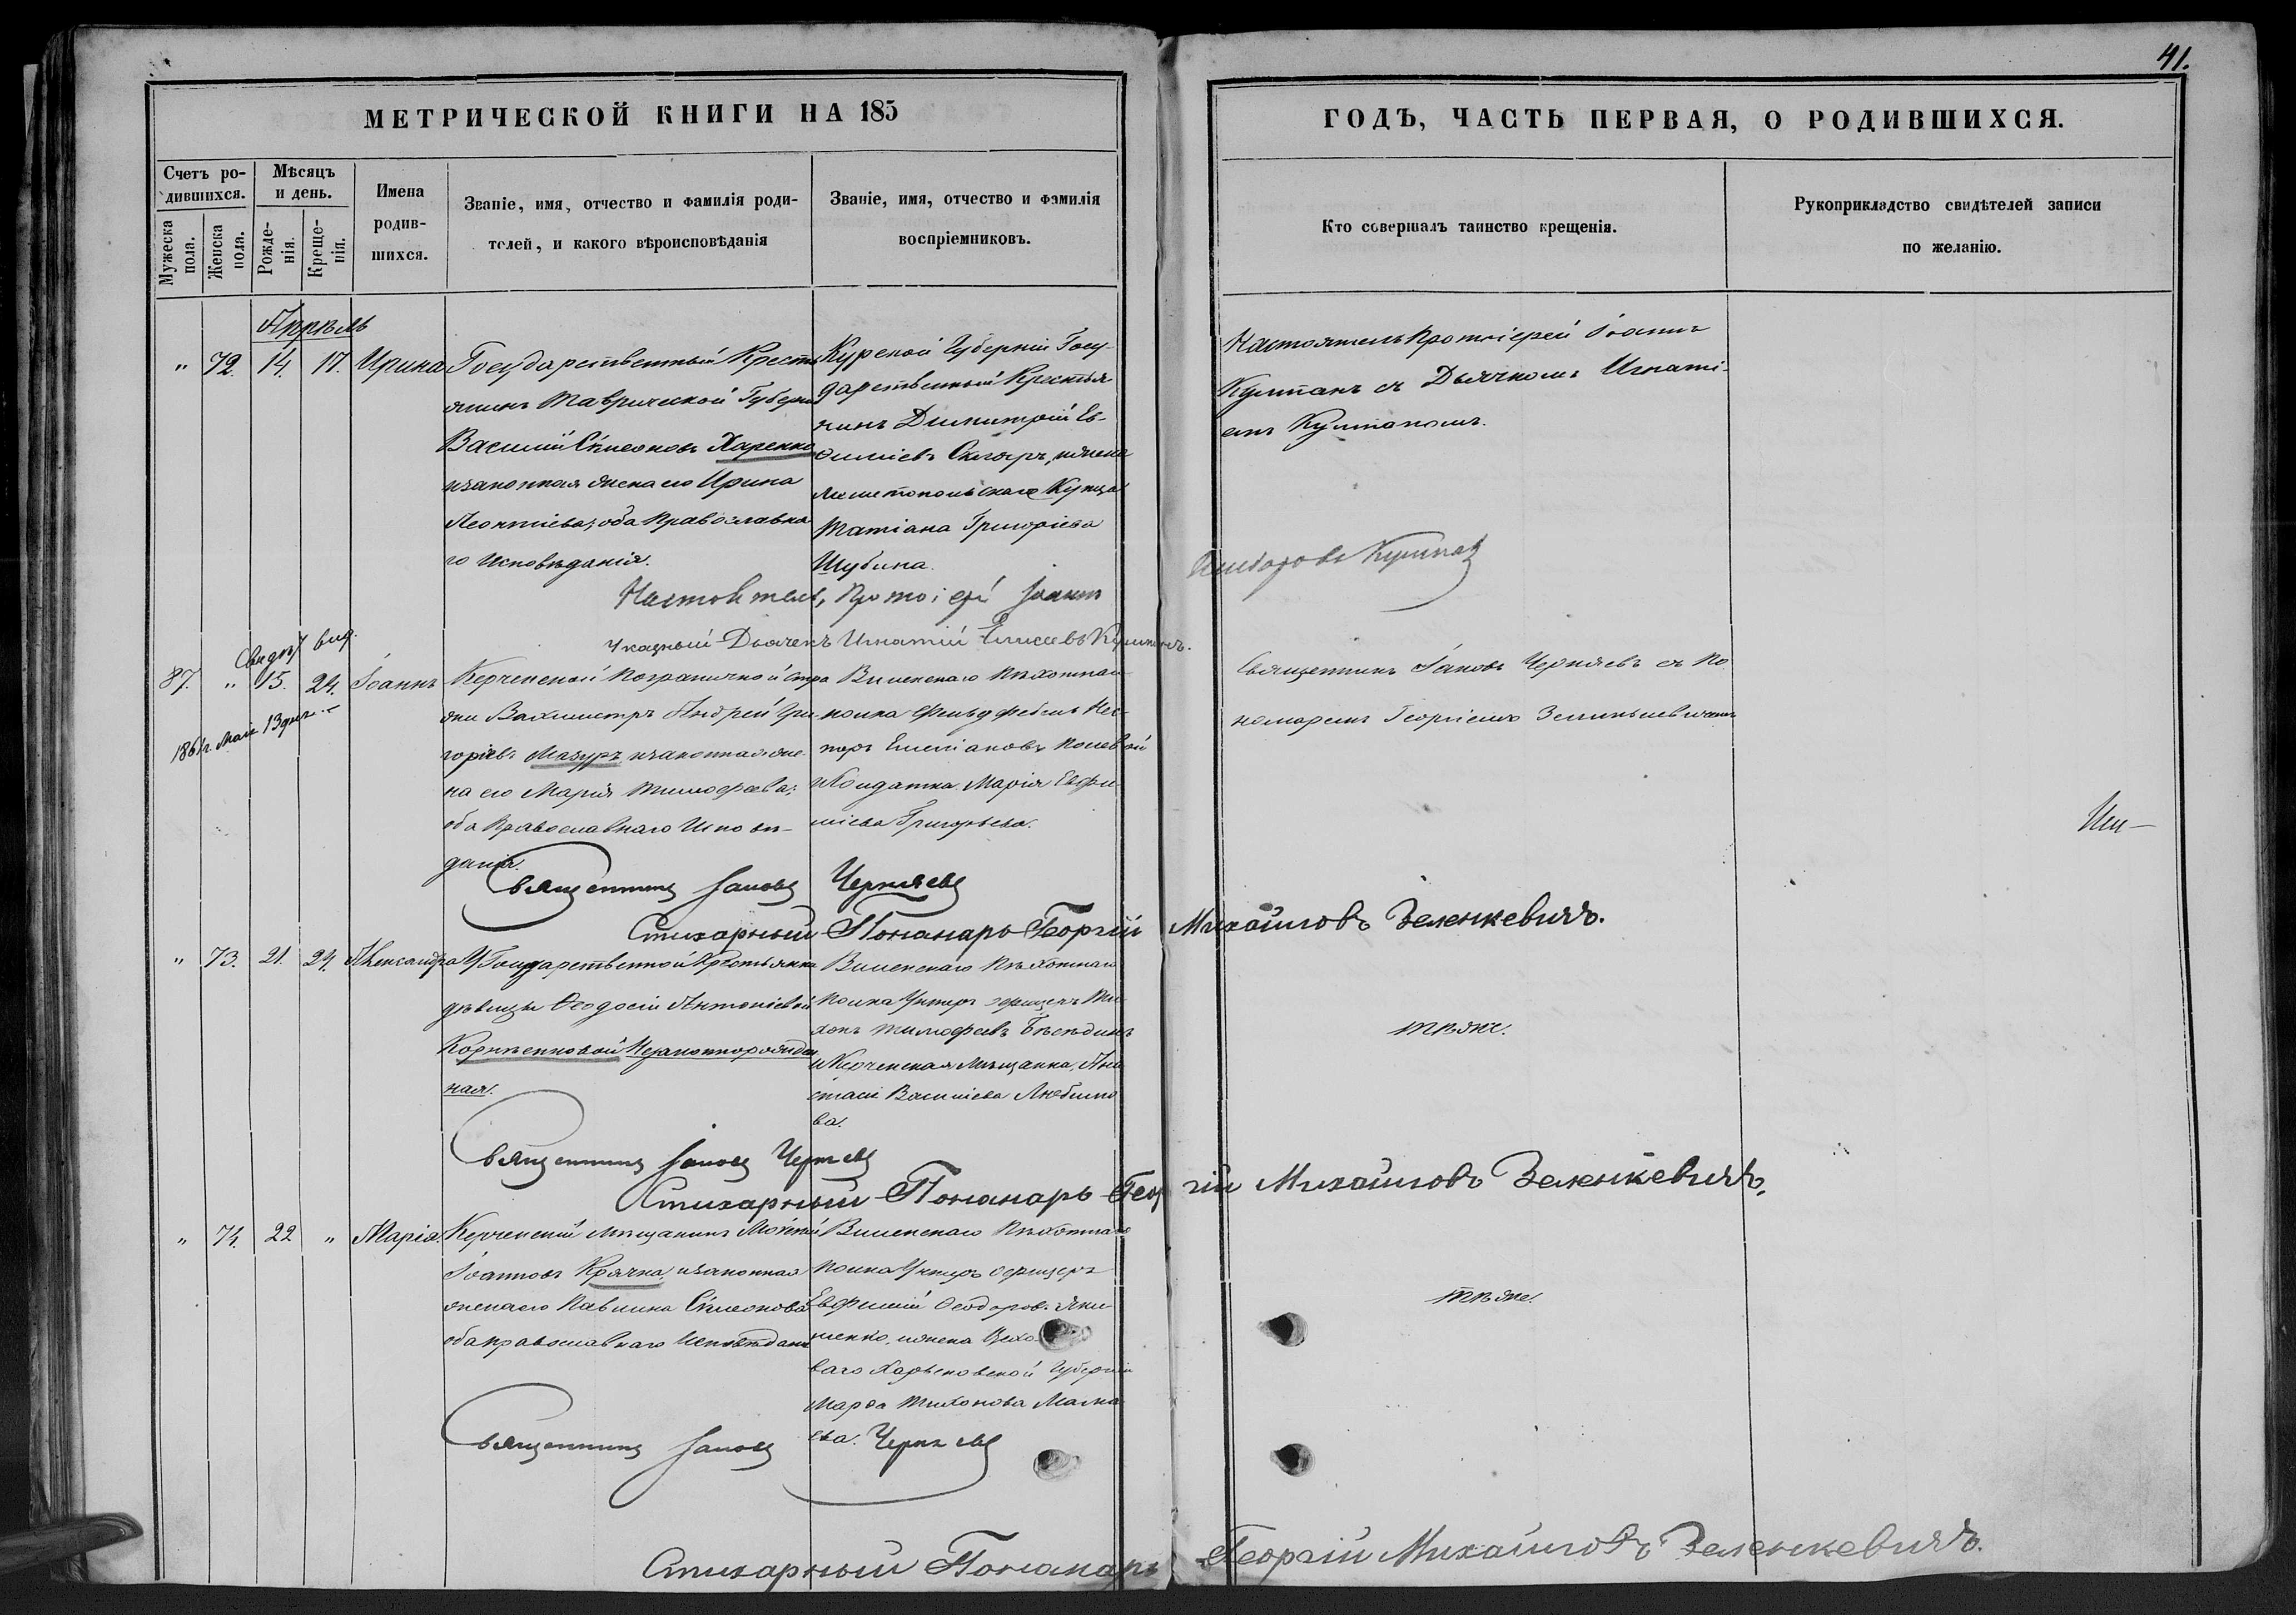 41.
МЕТРИЧЕСКОЙ КНИГИ НА 185
ГОДЪ, ЧАСТЬ ПЕРВАЯ, О РОДИВШИХСЯ.
Счетъ ро-
дившихся.
Мужеска
пола.
Женска
пола.
Мѣсяцъ
и день.
Рожде-
нія.
Креще-
нія.
Имена
родив-
шихся.
Званіе, имя, отчество и фамилія роди-
телей, и какого вѣроисповѣданія
Званіе, имя, отчество и фамилія
воспріемниковъ.
Кто совершалъ таинство крещенія.
Рукоприкладство свидѣтелей записи
по желанію.
Апрѣль
" 72. 14. 17. Ирина
Государственный Кресть
янинъ Таврической Губерніи
Василій Сѵмеоновъ Харенко
изаконная жена его Ирина
Леонтіева, оба Православна
го Исповѣданія.
Курской Губерніи Госу-
дарственный Крестья
нинъ Димитрій Ев-
ижена
Мелитопольскаго Купца
Татіана Григоріева
Шубина.
Настоятель Протоіерей Іоаннъ
Култанъ съ Дьячкомъ Игнаті-
емъ
Настоятель, Протоіерей Іоаннъ
Указный Дьячекъ Игнатій Елисеевъ
Свидѣт. выд.
87. " 15. 24. Іоаннъ
1861г. Май 13 дня
Керченской Пограничной Стра
жи Вахмистръ Андрей Гри-
горіевъ Мазуръ изаконная же-
на его Марія Тимофеева;
оба Православнаго Исповѣ-
данія.
Виленскаго Пѣхотнаго
полка Фельдфебель Нес-
торъ Емеліановъ Полевой
и Солдатка Марія Евфи-
міева Григорьева.
Священникъ Іаковъ Черняевъ съ По
номаремъ Георгіемъ Зеленкевичемъ
Ии-
Священникъ Іаковъ Черняевъ
Стихарный Понамарь Георгій Михайловъ Зеленкевичъ.
" 73. 21. 24. Александра
У Государственной Крестьянки
дѣвицы Феодосіи Антоніевой
Корнѣенковой Незаконнорожден
ная.
Виленскаго Пѣхотнаго
Полка Унтеръ офицеръ Ти-
хонъ Тимофеевъ Бѣсѣдинъ
и Керченская Мѣщанка, Ана
стасія Василіева Любимо
ва.
тѣже.
Священникъ Іаковъ Черняевъ
Стихарный Понамарь Георгій Михайловъ Зеленкевичъ.
" 74. 22 " Марія.
Керченскій Мѣщанинъ Моѵсей
Іоанновъ Крячка, изаконная
жена его Павлина Сѵмеонова
оба православнаго Исповѣданія
Виленскаго Пѣхотнаго
Полка Унтеръ Офицеръ
Евфимій Феодоров. Яки
менко, ижена Цехо
ваго Харьковской Губерніи
Марфа Тихонова Малы
ева.
тѣже.
Священникъ Іаковъ Черняевъ
Стихарный Понамарь Георгій Михайловъ Зеленкевичъ.